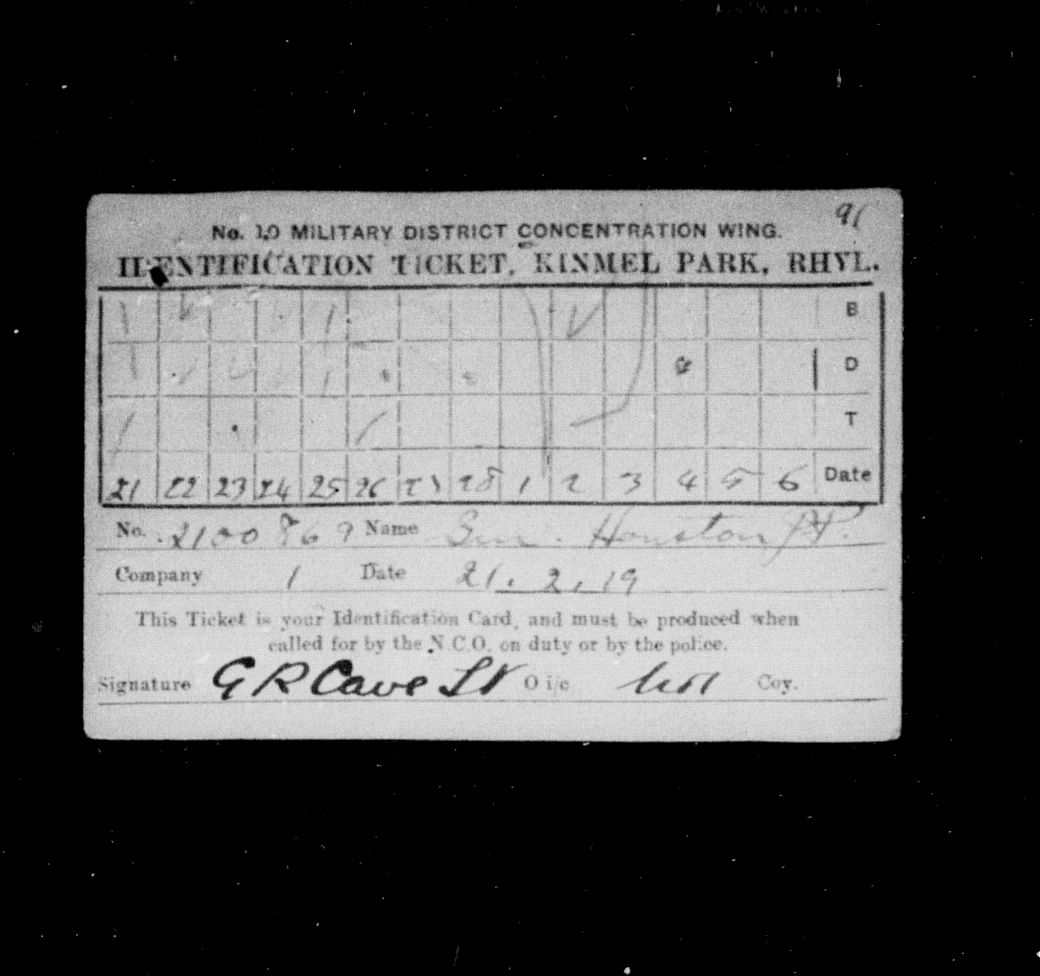 91
No. 10 MILITARY DISTRICT CONCENTRATION WING.
IDENTIFICATION TICKET, KINMEL PARK, RHYL.
B
D
T
21 22 23 24 25 26 27 28 1 2 3 4 5 6 Date
No. 2100869 Name Houston
Company 1 Date 21.2.19
This Ticket is your Identification Card, and must be produced when
called for by the N.C.O. on duty or by the police.
Signature G R Cave Lt O i/c No1 Coy.